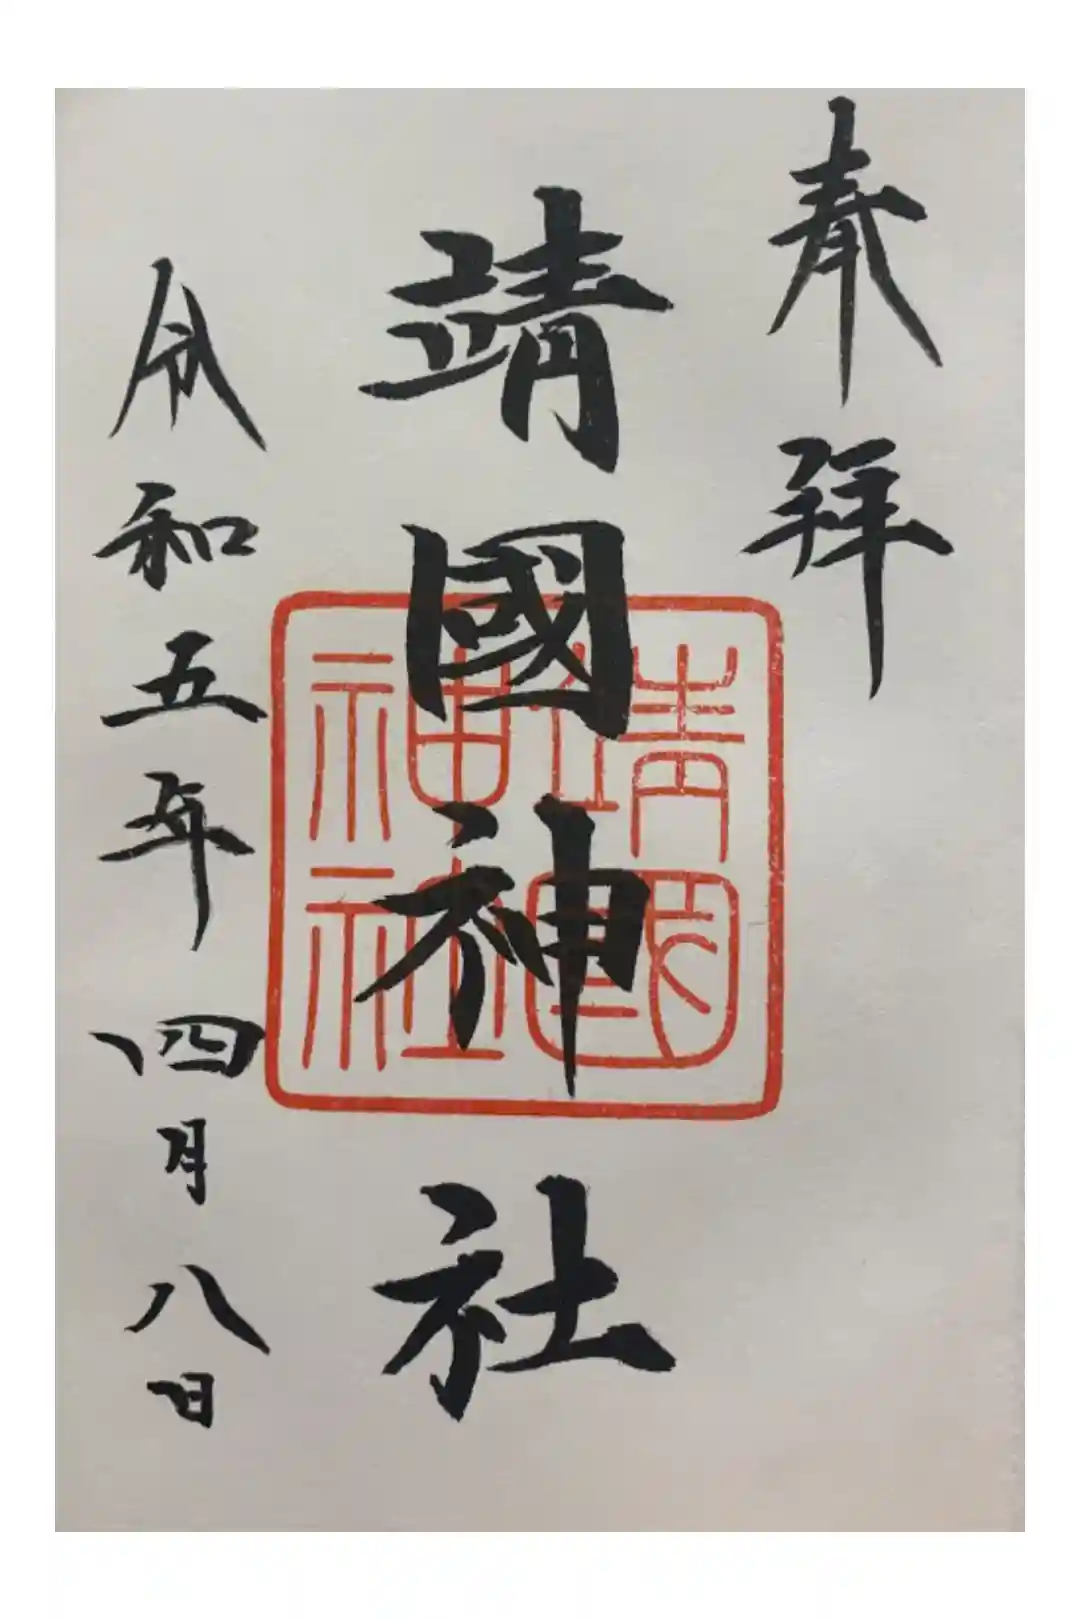 奉拝
靖國神社
靖國
神社
令和五年四月八日